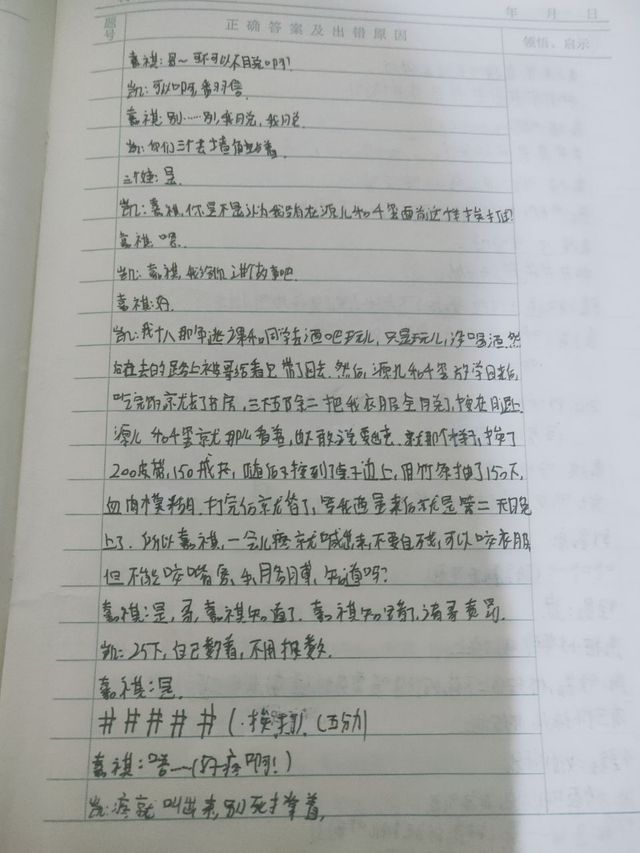 年 月 日
题号 正确答案及出错原因 领悟、启示
嘉祺:哥~可不可以不脱啊?
凯:可以啊,翻倍
嘉祺:别……别,我脱,我脱
凯:你们三个去墙边站着
三个娃:是.
凯:嘉祺,你是不是认为我没有在源儿和千玺面前这样挨打过?
嘉祺:嗯.
凯:嘉祺,我给你讲个故事吧
嘉祺:好.
凯:我十八那年逃课和同学去酒吧玩儿,只是玩儿,没喝酒.然
后在去的路上被哥给看见带了回去.然后,源儿和千玺放学回来后,
吃完饭就去了书房,三下五除二把我衣服全脱了,按在腿上
源儿和千玺就那么看着,也不敢说要走.就那个样子,挨了
200皮带,150戒尺,随后又按到了桌子边上,用竹条抽了150下,
血肉模糊.打完后就晕了,等我再醒来后就是第二天晚
上了.所以嘉祺,一会儿疼就喊出来,不要自残,可以咬衣服
但不能咬嘴唇、和胳膊,知道吗?
嘉祺:是,哥,嘉祺知道了.嘉祺知错了,请哥责罚.
凯:25下,自己数着,不用报数.
嘉祺:是.
# # # # # (挨打).(五分)
嘉祺:嗯~(好疼啊!)
凯:疼就叫出来,别死撑着,